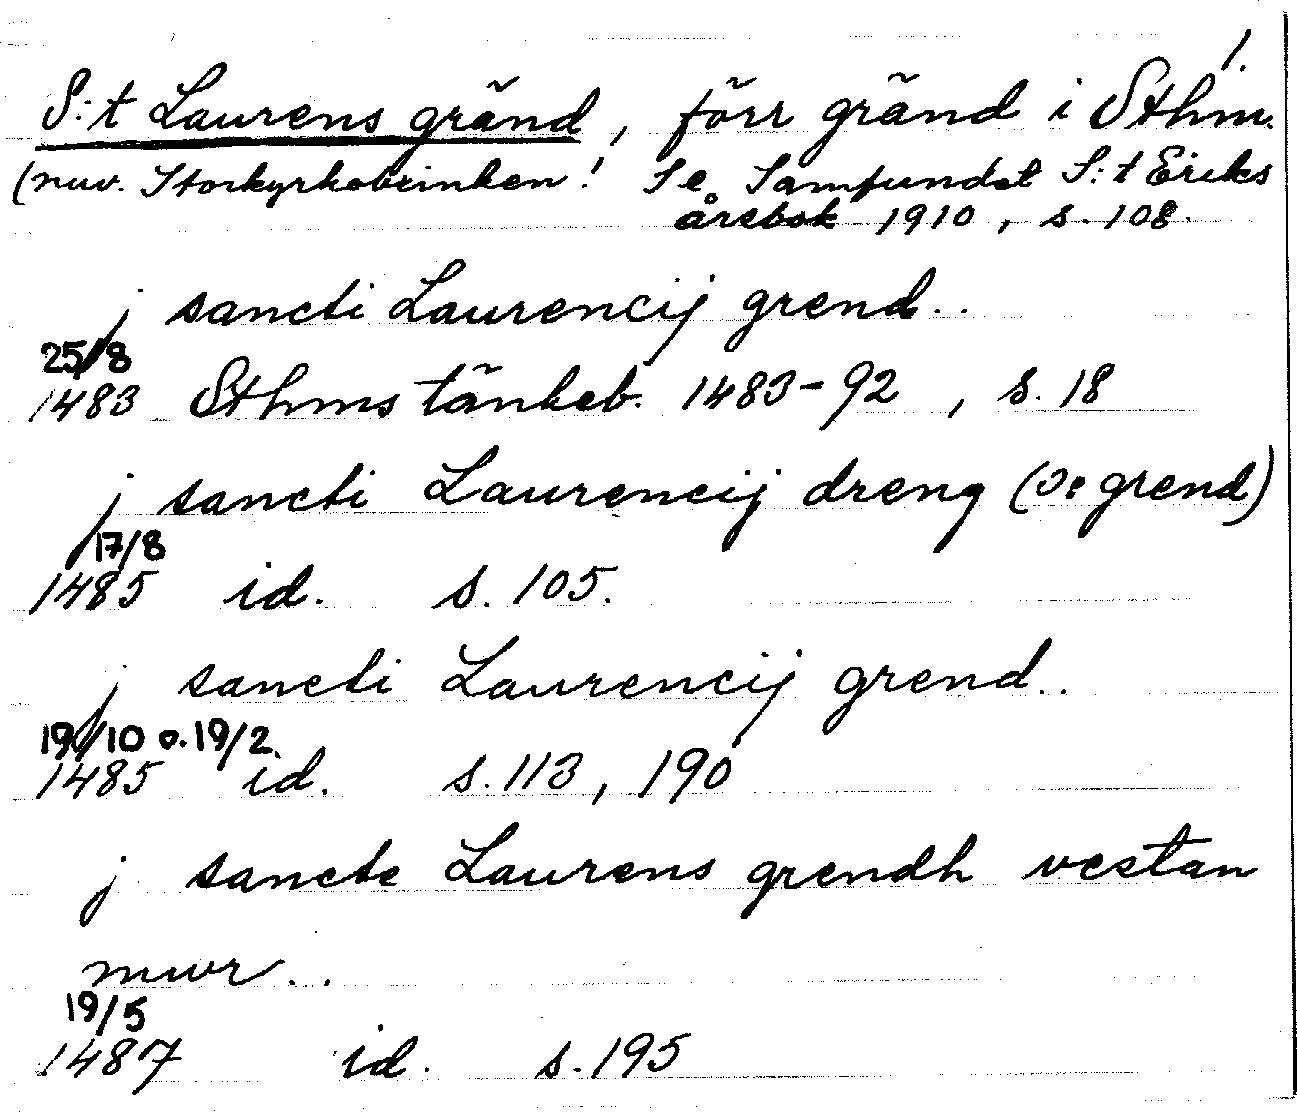 1.
S:t Laurens gränd, förr gränd i Sthm.
(nuv. Storkyrkobrinken! Se Samfundet S:t Eriks
årsbok 1910, s. 108.
j sancti Laurencij grend..
25/8
1483 Sthms tänkeb. 1483-92, s. 18
j sancti Laurencij dreng (o: grend)
17/8
1485 id. s. 105.
j sancti Laurencij grend..
19/10 o. 19/2
1485 id. s. 113, 190
j sancte Laurens grendh vestan
mwr...
19/5
1487 id. s. 195